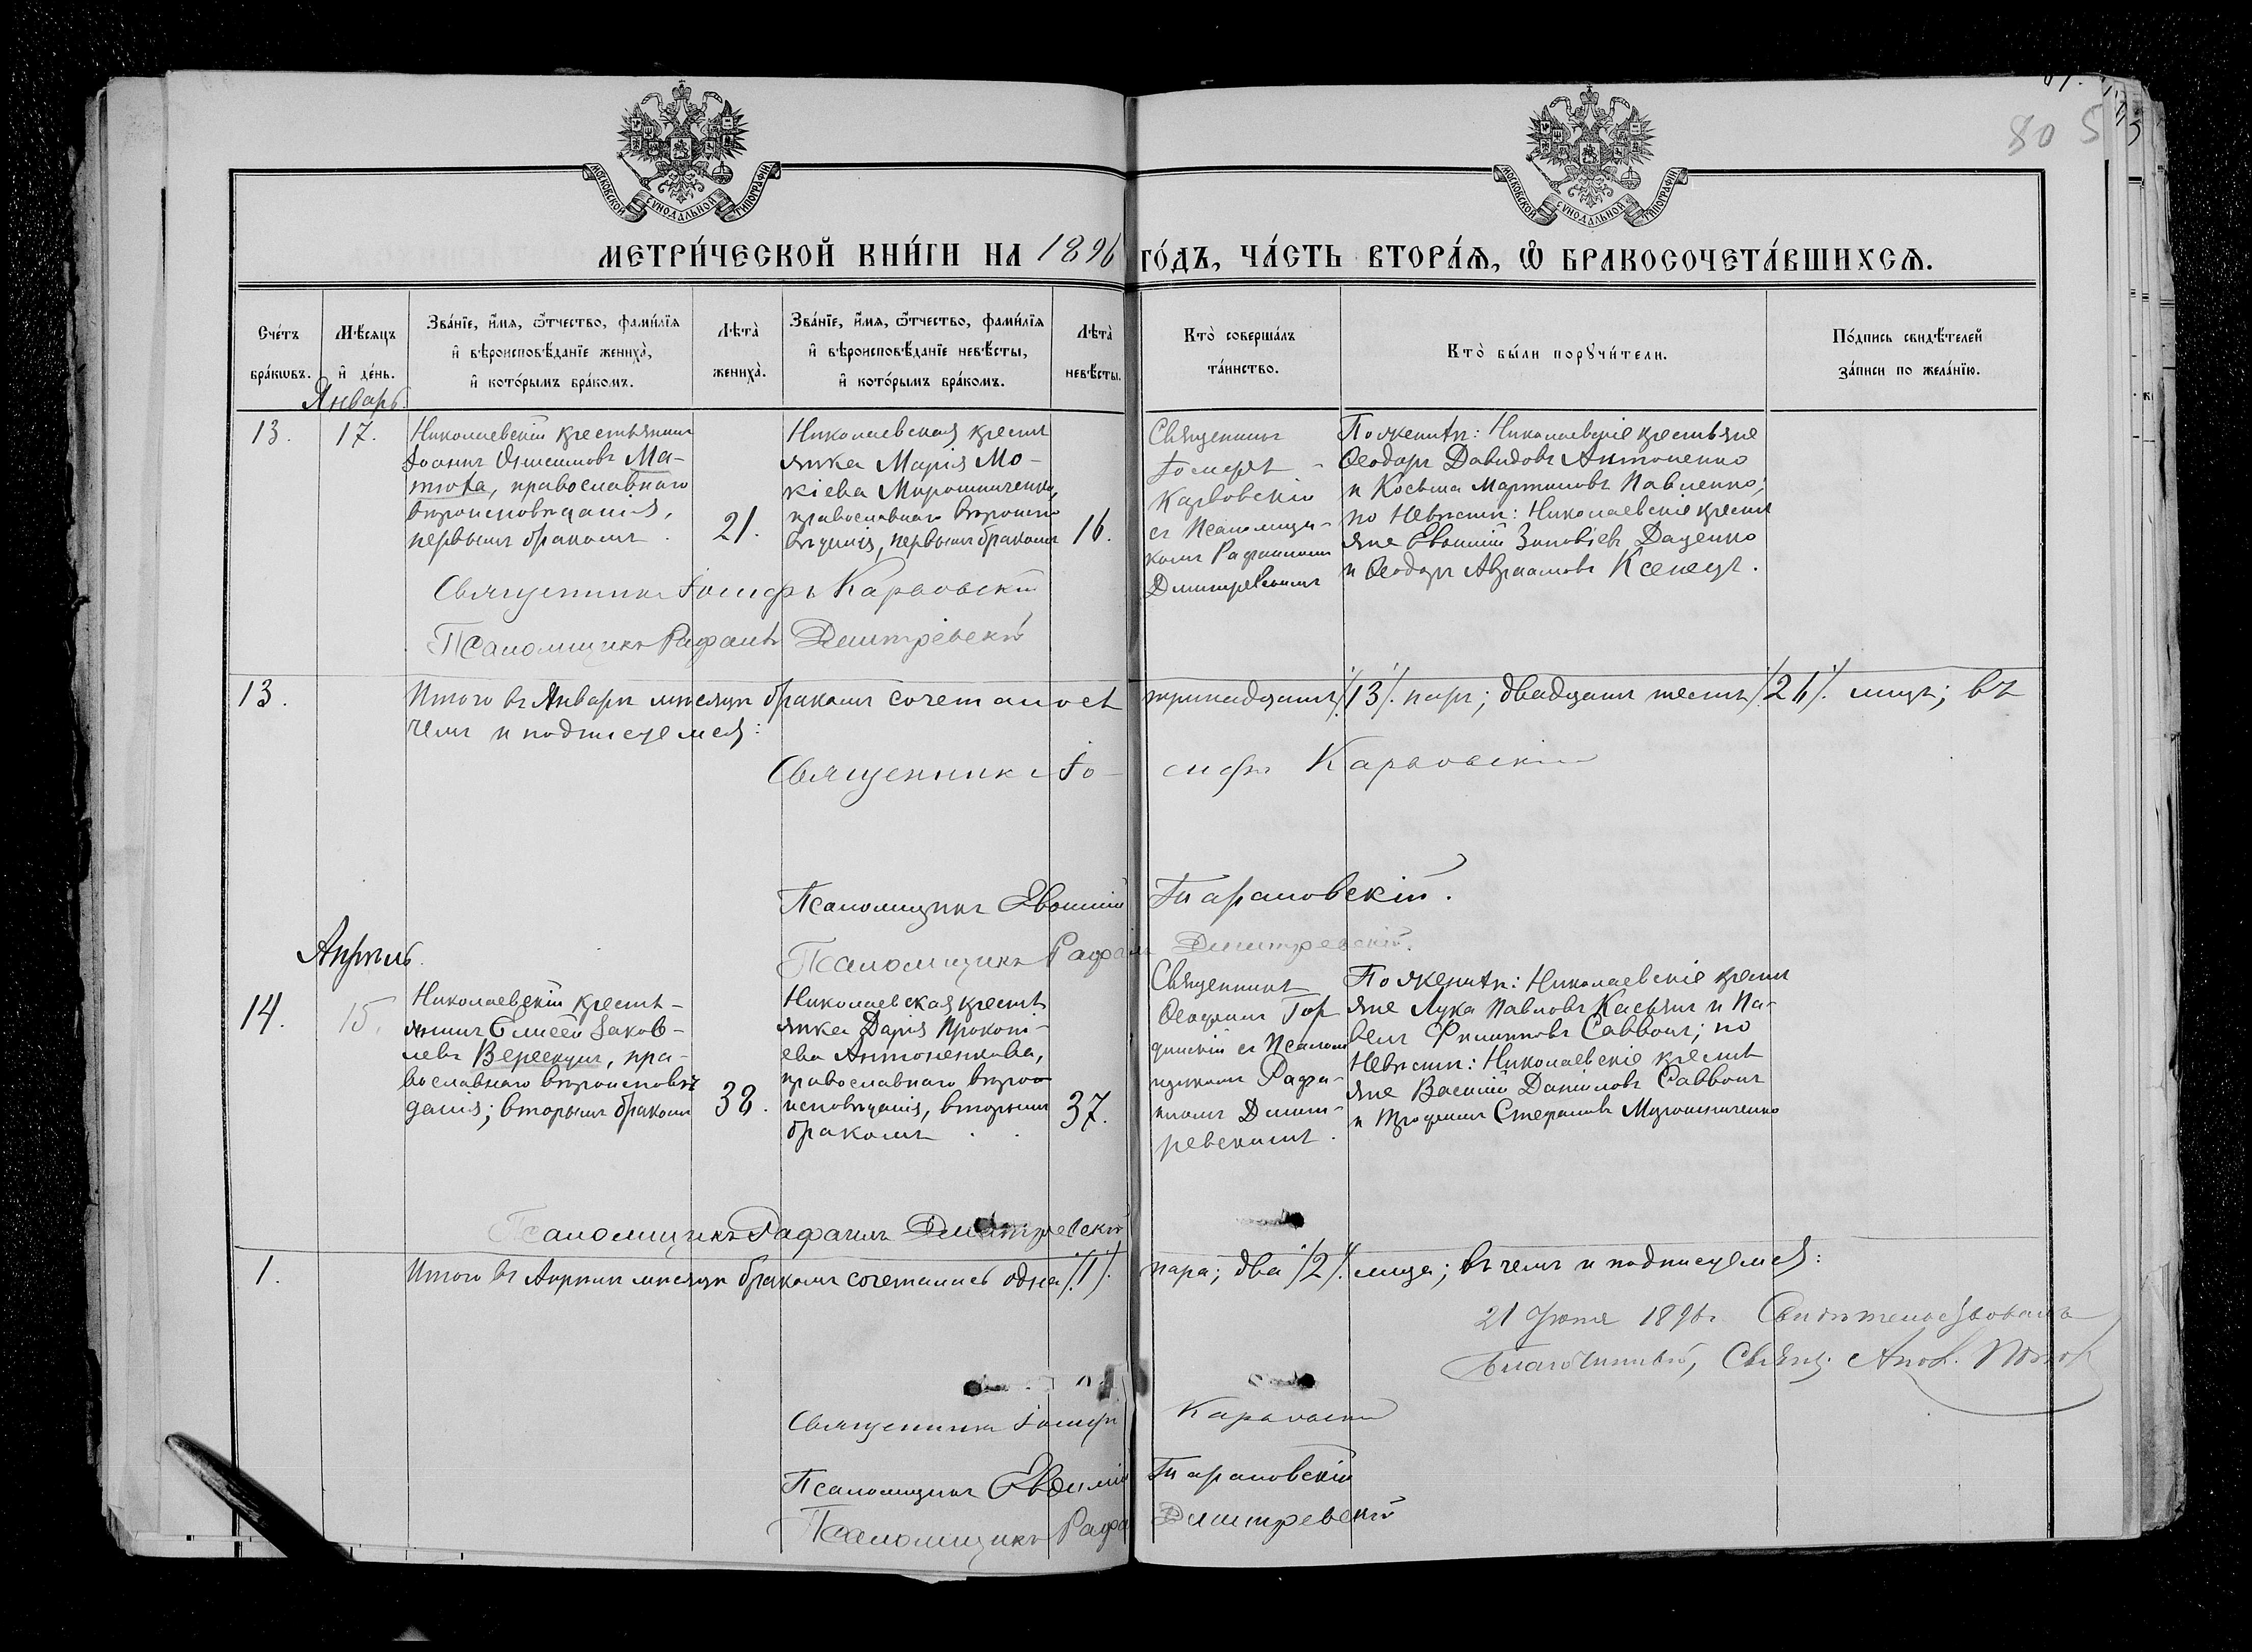 80 5
МОСКОВСКОЙ СѴНОДАЛЬНОЙ ТИПОГРАФІИ
МОСКОВСКОЙ СѴНОДАЛЬНОЙ ТИПОГРАФІИ
МЕТРИ́ЧЕСКОЙ КНИ́ГИ НА 1896 ГО́ДЪ, ЧА́СТЬ ВТОРА́Ѧ, Ѡ БРАКОСОЧЕТА́ВШИХСѦ.
Сче́тъ бра́кѡвъ.
Мѣ́сѧцъ и де́нь.
Зва́нїе, и́мѧ, ѻ҆́тчество, фамилїѧ и вѣроисповѣ́данїе жениха̀, и кото́рымъ бра́комъ.
Лѣта̀ жениха̀.
Зва́нїе, и́мѧ, ѻ҆́тчество, фамилїѧ и вѣроисповѣ́данїе невѣ́сты, и кото́рымъ бра́комъ.
Лѣта̀ невѣ́сты.
Кто̀ соверша́лъ та́инство.
Кто̀ бы́ли порꙋчи́тели.
По́дпись свидѣ́телей за́писи по жела́нїю.
Январь.
13.
17.
Николаевскій крестьянинъ
Іоаннъ Онисимовъ Ма-
тюха, православнаго
вѣроисповѣданія,
первымъ бракомъ.
21.
Николаевская крестья
янка Марія Мо-
кіева Мирошниченко,
православнаго вѣроиспо
вѣданія, первымъ бракомъ
16.
Священникъ
Іосифъ
Карвовскій
съ Псаломщи-
комъ Рафаиломъ
Дмитревскимъ
По женихѣ: Николаевскіе крестьяне
Ѳеодоръ Давидовъ Антоненко
и Косьма Мартиновъ Павленко;
по невѣстѣ: Николаевскіе крестья
яне Евѳимій Зиновіевъ Даценко
и Ѳеодоръ Авраамовъ Ксенецъ.
Священникъ Іосифъ Карвовскій
Псаломщикъ Рафаилъ Дмитревскій
13.
Итого въ Январѣ мѣсяцѣ бракомъ сочеталось тринадцать /13/. паръ; двадцать шесть /26/. лицъ; въ
чемъ и подписуемся:
Священникъ Іосифъ Карвовскій
Псаломщикъ Евѳимій Тарановскій.
Псаломщикъ Рафаилъ Дмитревскій.
Апрѣль.
14.
15.
Николаевскій кресть-
янинъ Елисей Іаков-
левъ Верескунъ, пра-
вославнаго вѣроисповѣ
данія; вторымъ бракомъ
38.
Николаевская кресть
янка Дарія Прокопі-
ева Антоненкова,
православнаго вѣро
исповѣданія, вторымъ
бракомъ.
37.
Священникъ
съ Псалом
щикомъ Рафа-
иломъ Дмит-
ревскимъ.
По женихѣ: Николаевскіе кресть
яне Лука Павловъ Касьянъ и Па-
велъ Филипповъ Саввонъ; по
невѣстѣ: Николаевскіе кресть
яне Василій Даніиловъ Саввонъ
и Трофимъ Стефановъ Мирошниченко
Псаломщикъ Рафаилъ Дмитревскій
1.
Итого въ Апрѣлѣ мѣсяцѣ бракомъ сочеталась одна /1/. пара; два /2/. лица; въ чемъ и подписуемся:
21 Іюня 1896г. Свидѣтельствовалъ
Благочинный, Свящ.
Священникъ Іосифъ Карвовскій
Псаломщикъ Евѳимій Тарановскій
Псаломщикъ Рафа Дмитревскій